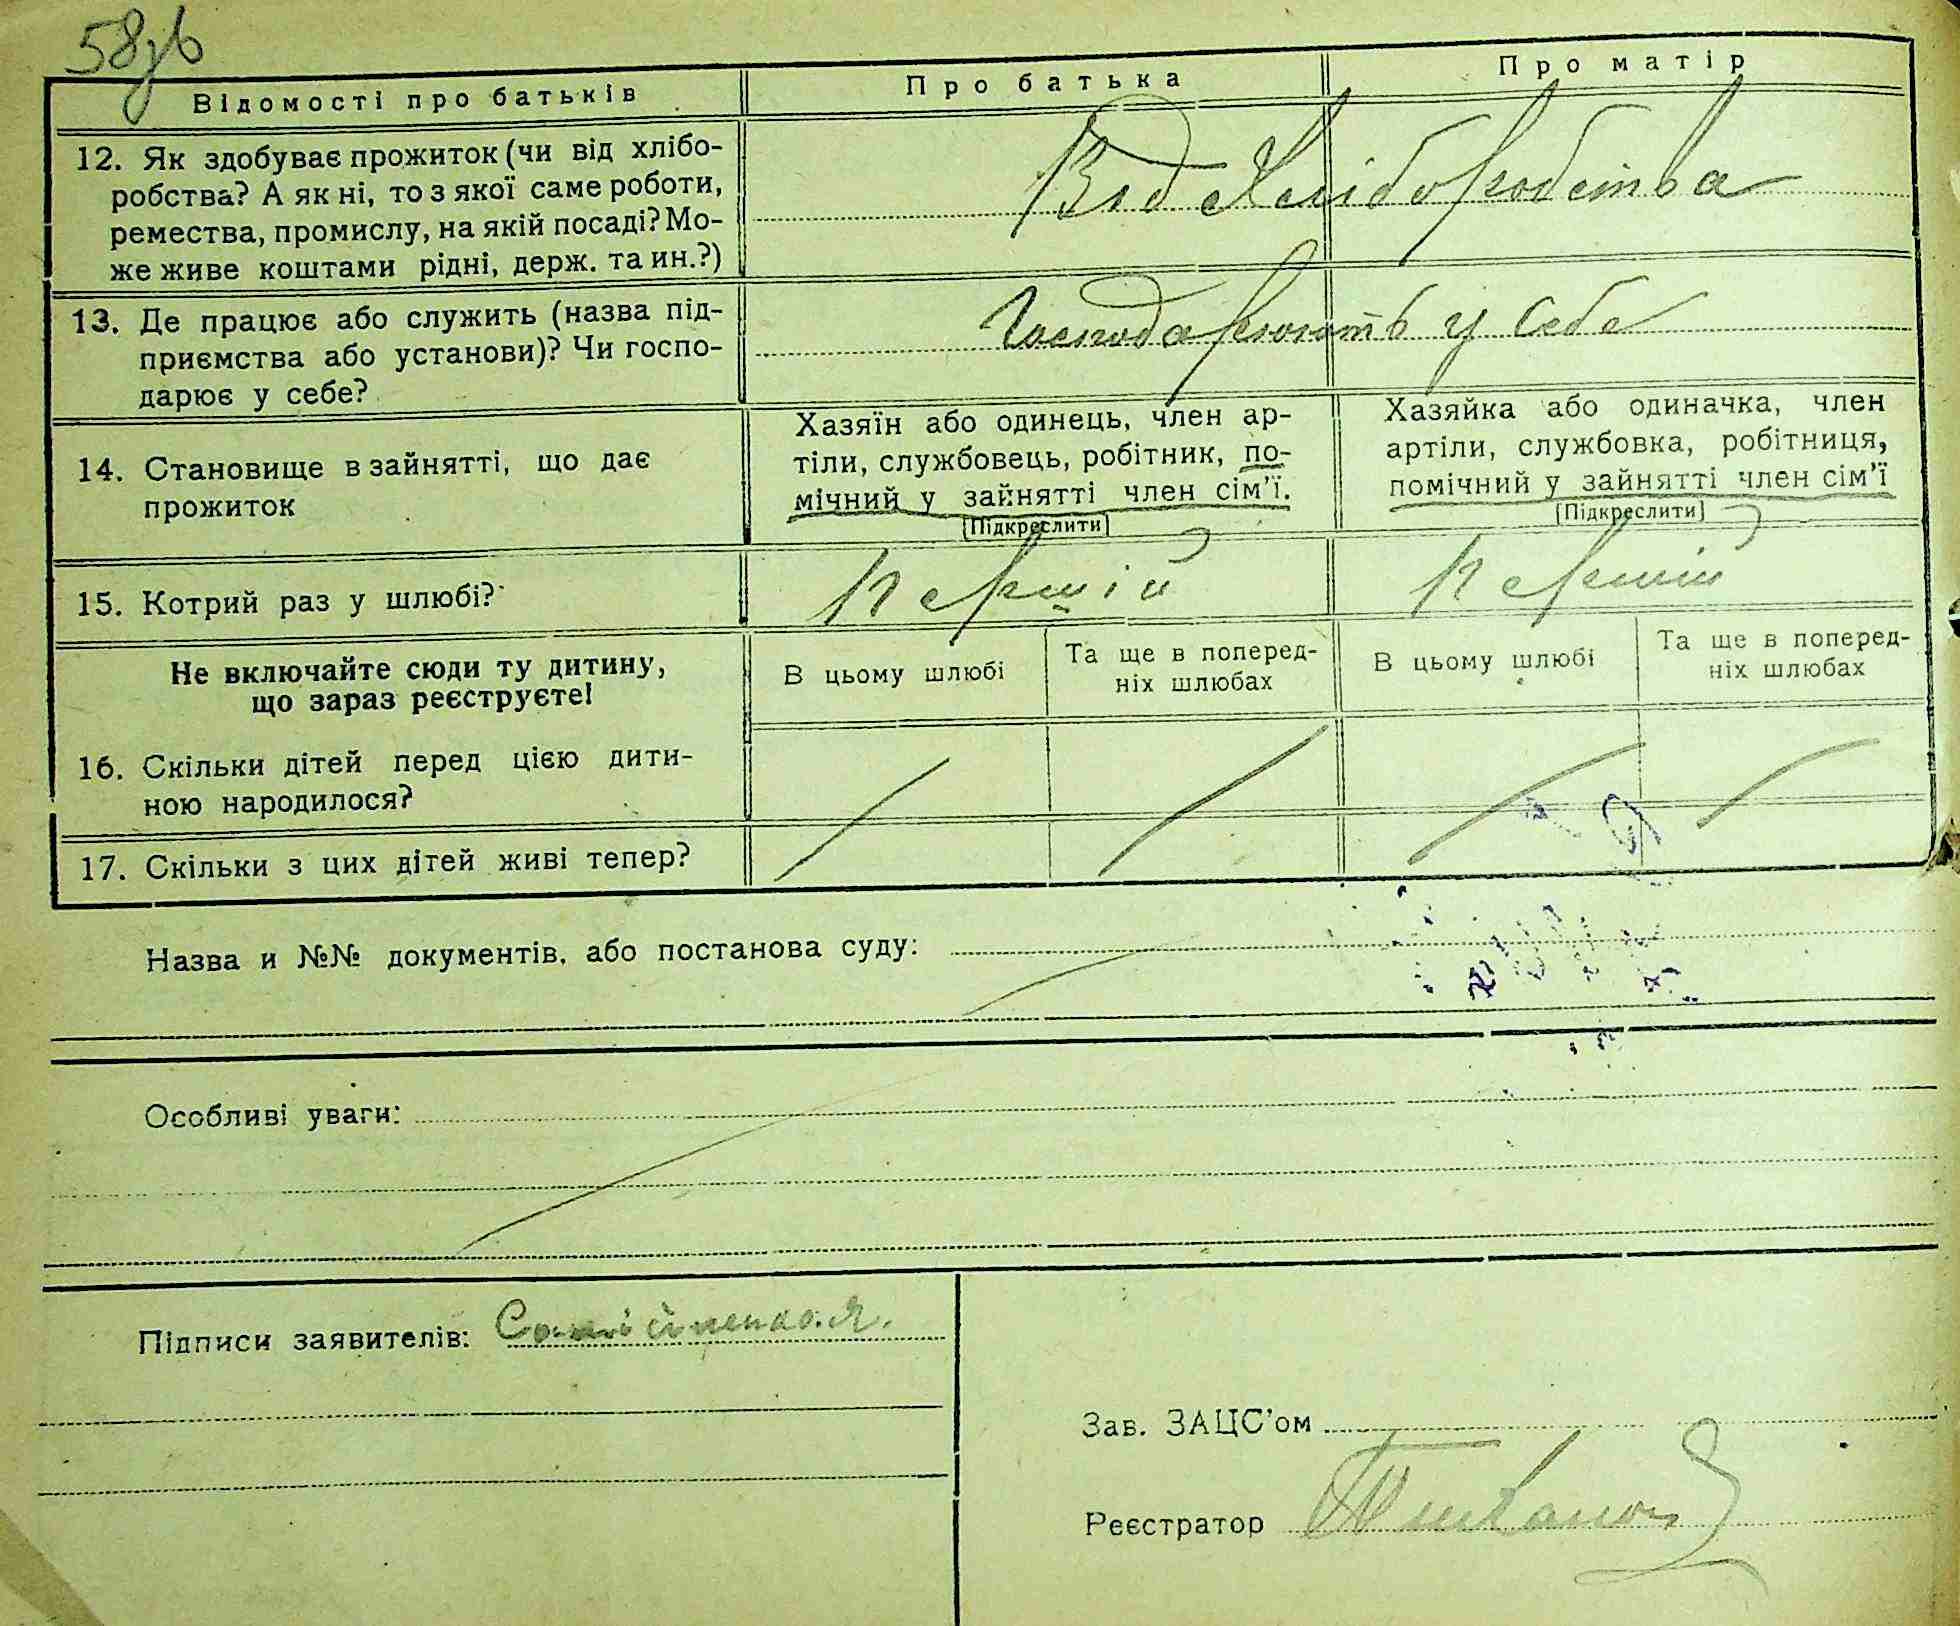 58зв
Відомості про батьків
Про батька
Про матір
12. Як здобуває прожиток (чи від хлібо-
робства? А як ні, то з якої саме роботи,
ремества, промислу, на якій посаді? Мо-
же живе коштами рідні, держ. та ин.?)
Від Хліборобства
13. Де працює або служить (назва під-
приємства або установи)? Чи госпо-
дарює у себе?
Господарюють у себе
14. Становище в зайнятті, що дає
прожиток
Хазяїн або одинець, член ар-
тіли, службовець, робітник, по-
мічний у зайнятті член сім'ї.
[Підкреслити]
Хазяйка або одиначка, член
артіли, службовка, робітниця,
помічний у зайнятті член сім'ї
[Підкреслити]
15. Котрий раз у шлюбі?
Перший
Перший
Не включайте сюди ту дитину,
що зараз реєструєте!
В цьому шлюбі
Та ще в поперед-
ніх шлюбах
В цьому шлюбі
Та ще в поперед-
ніх шлюбах
16. Скільки дітей перед цією дити-
ною народилося?
17. Скільки з цих дітей живі тепер?
Назва и №№ документів, або постанова суду:
Особливі уваги:
Підписи заявителів:
Зав. ЗАЦС'ом
Реєстратор